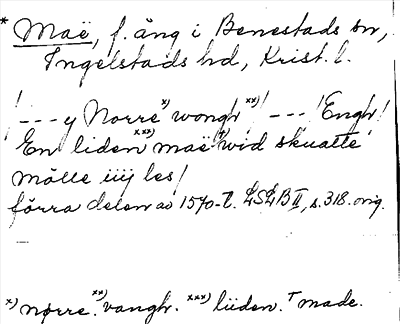 * Maë, f. äng i Benestads sn,
Ingelstads hd, Krist. l.
/ - - - y Norre x) wongh xx)/ - - - /Engh/
En liden xxx) maë †) wid skuatte
mölle iiij les/
förra delen av 1570-t. LSLB II, s. 318. orig.
x) nørre. xx) vangh. xxx) liiden. † made.